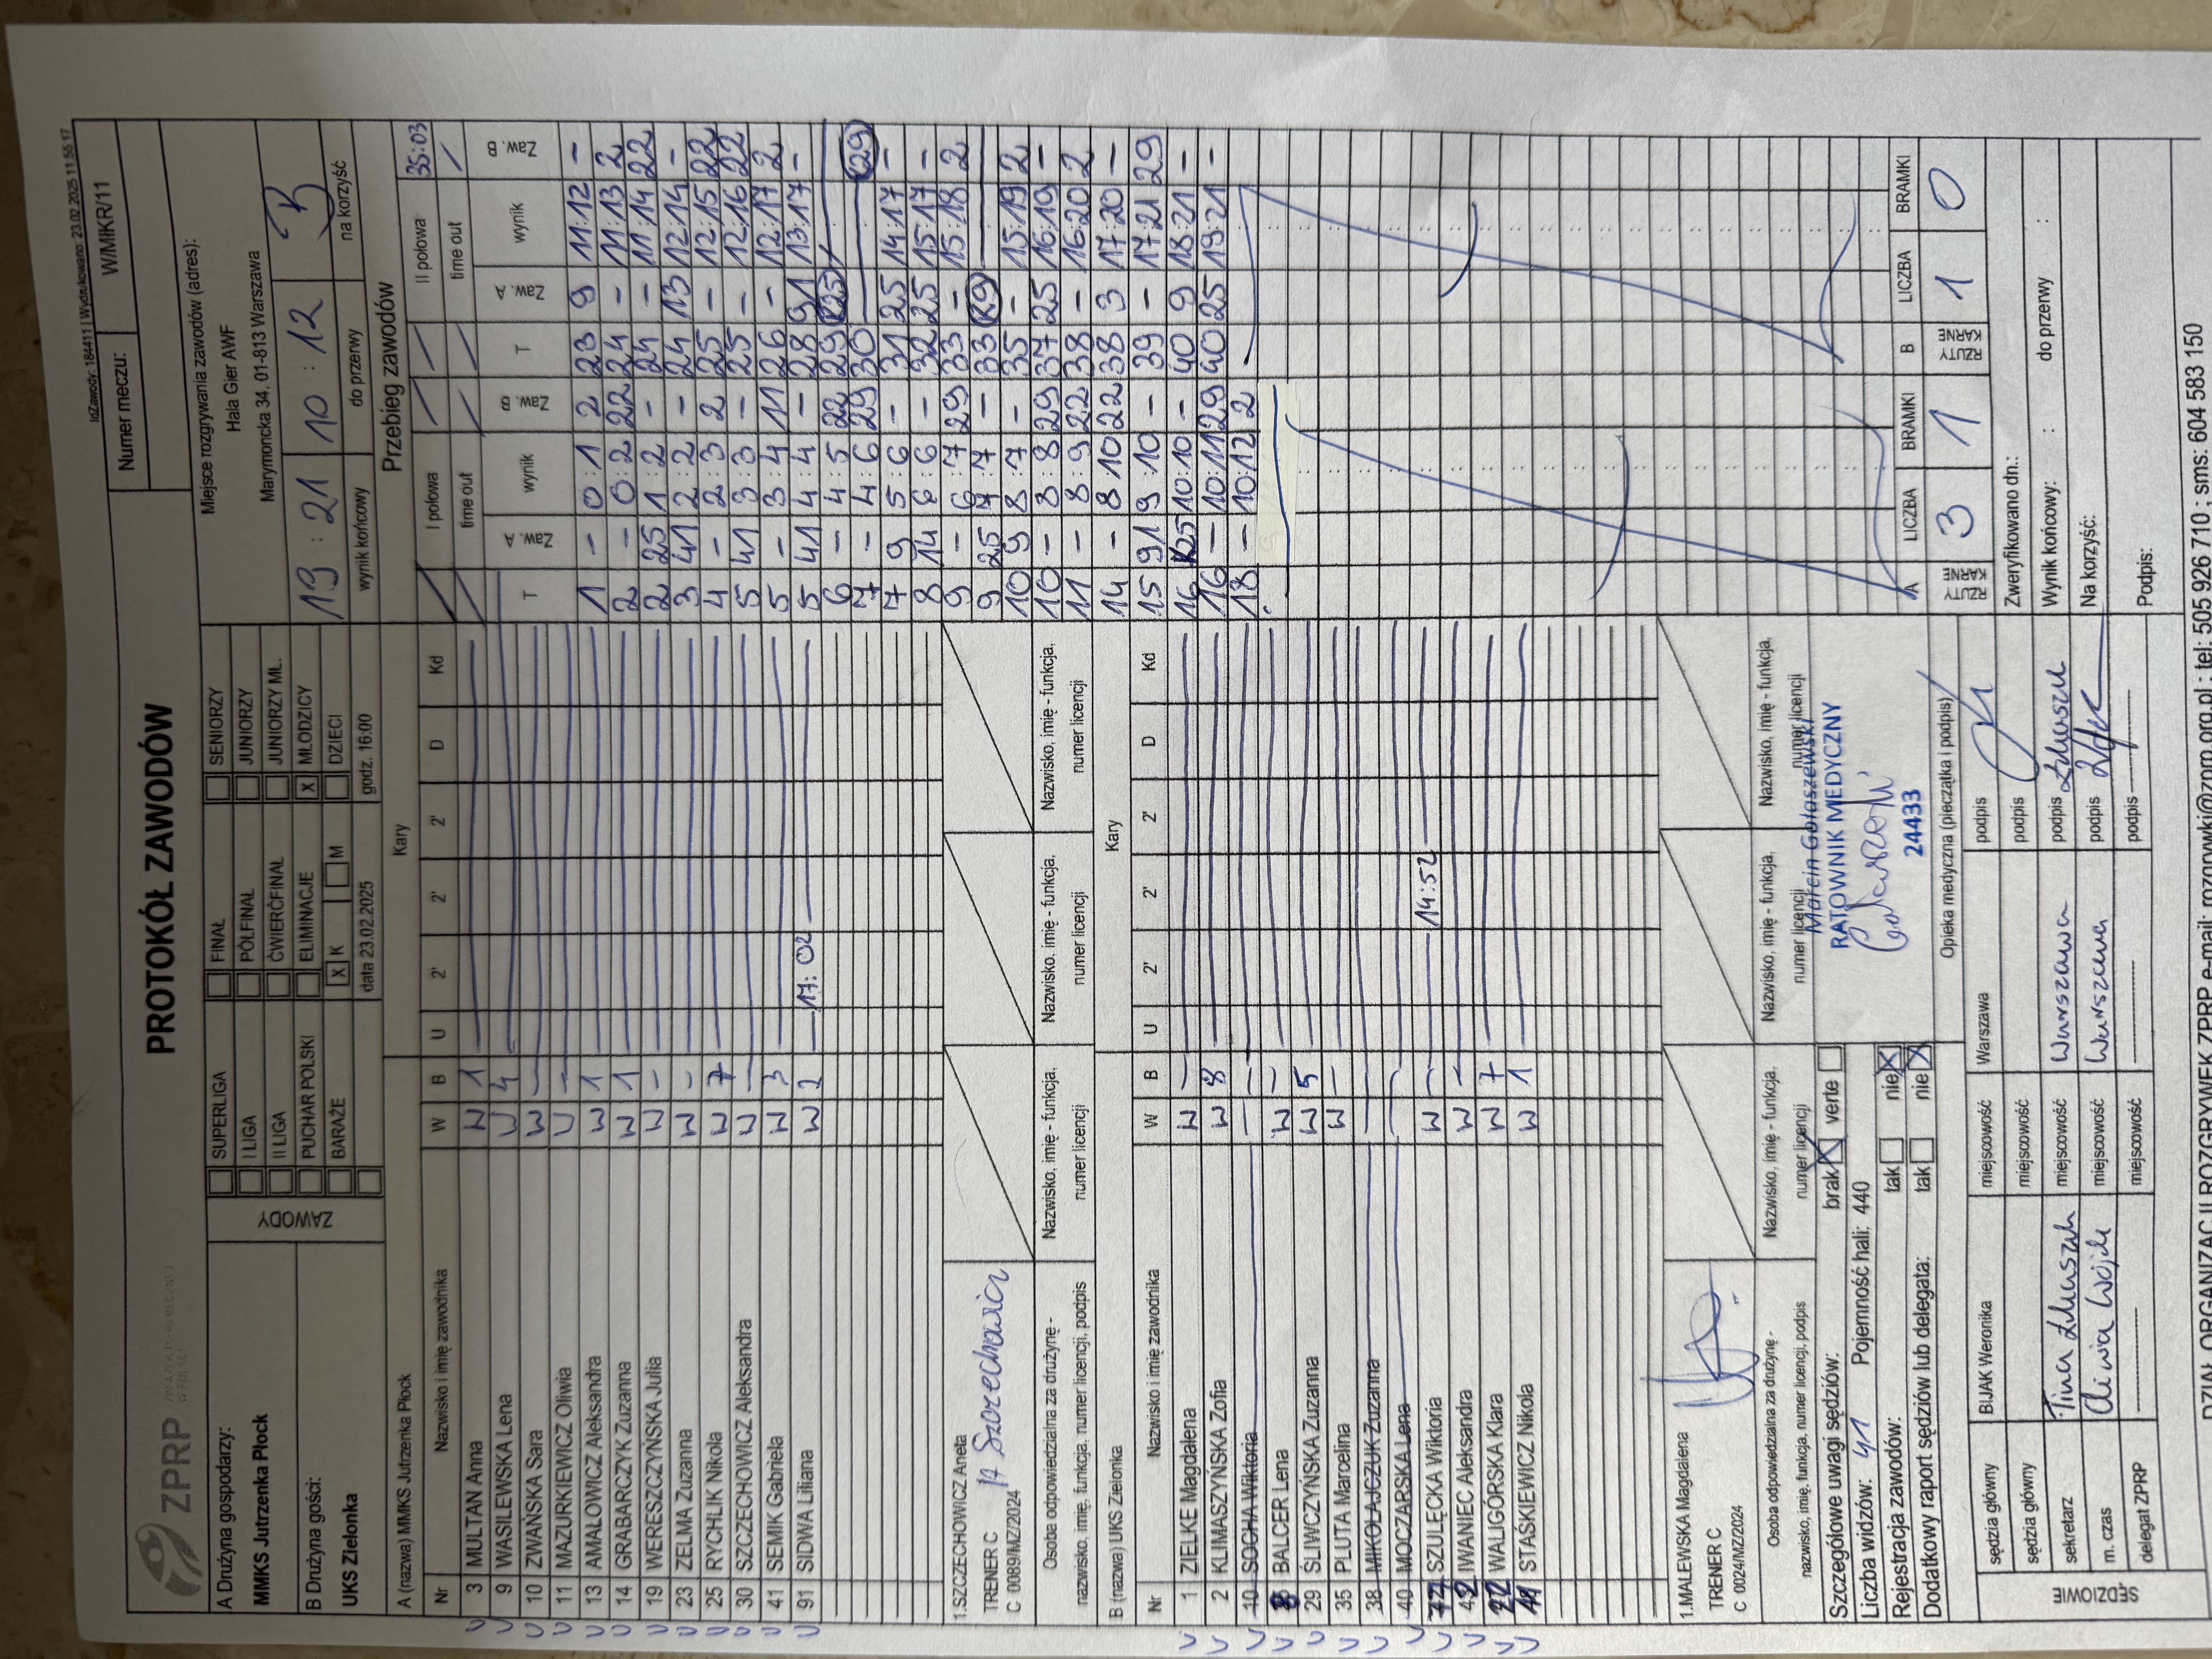 IdZawody: 184411 | Wydrukowano: 23.02.2025 11:55:17
ZPRP
PROTOKÓŁ ZAWODÓW
Numer meczu: W/MłKR/11
A Drużyna gospodarzy:
MMKS Jutrzenka Płock
B Drużyna gości:
UKS Zielonka
ZAWODY
SUPERLIGA FINAŁ SENIORZY
I LIGA PÓŁFINAŁ JUNIORZY
II LIGA ĆWIERĆFINAŁ JUNIORZY MŁ.
PUCHAR POLSKI ELIMINACJE X MŁODZICY
BARAŻE X K M DZIECI
data 23.02.2025 godz. 16:00
Miejsce rozgrywania zawodów (adres):
Hala Gier AWF
Marymoncka 34, 01-813 Warszawa
19 : 21 10 : 12 B
wynik końcowy do przerwy na korzyść
A (nazwa) MMKS Jutrzenka Płock Kary
Nr Nazwisko i imię zawodnika W B U 2' 2' 2' D Kd
3 MULTAN Anna W 1
9 WASILEWSKA Lena W 4
10 ZWAŃSKA Sara W –
11 MAZURKIEWICZ Oliwia W –
13 AMALOWICZ Aleksandra W 1
14 GRABARCZYK Zuzanna W 1
19 WERESZCZYŃSKA Julia W –
23 ZELMA Zuzanna W –
25 RYCHLIK Nikola W 7
30 SZCZECHOWICZ Aleksandra W –
41 SEMIK Gabriela W 3
91 SIDWA Liliana W 2 17:02
1.SZCZECHOWICZ Aneta
TRENER C
C 0089/MZ/2024
A Szczechowicz
Osoba odpowiedzialna za drużynę - nazwisko, imię, funkcja, numer licencji, podpis
Nazwisko, imię - funkcja, numer licencji
Nazwisko, imię - funkcja, numer licencji
Nazwisko, imię - funkcja, numer licencji
B (nazwa) UKS Zielonka Kary
Nr Nazwisko i imię zawodnika W B U 2' 2' 2' D Kd
1 ZIELKE Magdalena W –
2 KLIMASZYŃSKA Zofia W 8
10 SOCHA Wiktoria –
8 BALCER Lena W –
29 ŚLIWCZYŃSKA Zuzanna W 5
35 PLUTA Marcelina W –
38 MIKOŁAJCZUK Zuzanna
40 MOCZARSKA Lena
SZULĘCKA Wiktoria W – 14:52
42 IWANIEC Aleksandra W –
22 WALIGÓRSKA Klara W 7
11 STAŚKIEWICZ Nikola W 1
1.MALEWSKA Magdalena
TRENER C
C 0024/MZ/2024
Osoba odpowiedzialna za drużynę - nazwisko, imię, funkcja, numer licencji, podpis
Nazwisko, imię - funkcja, numer licencji
Nazwisko, imię - funkcja, numer licencji
Nazwisko, imię - funkcja, numer licencji
Przebieg zawodów
I połowa II połowa 35:03
time out time out
T Zaw. A wynik Zaw. B T Zaw. A wynik Zaw. B
1 – 0:1 2 23 9 11:12 –
2 – 0:2 22 24 – 11:13 2
2 25 1:2 – 24 – 11:14 22
3 41 2:2 – 24 13 12:14 –
4 – 2:3 2 25 – 12:15 22
5 41 3:3 – 25 – 12:16 22
5 – 3:4 11 26 – 12:17 2
5 41 4:4 – 28 91 13:17 –
6 – 4:5 22 29 K25
7 – 4:6 29 30 K29
7 9 5:6 – 31 25 14:17 –
8 14 6:6 – 32 25 15:17 –
9 – 6:7 29 33 – 15:18 2
9 25 7:7 – 33 K9
10 9 8:7 – 35 – 15:19 2
10 – 8:8 29 37 25 16:19 –
11 – 8:9 22 38 – 16:20 2
14 – 8:10 22 38 3 17:20 –
15 91 9:10 – 39 – 17:21 29
16 K25 10:10 – 40 9 18:21 –
16 – 10:11 29 40 25 19:21 –
18 – 10:12 2
A RZUTY KARNE LICZBA BRAMKI B RZUTY KARNE LICZBA BRAMKI
3 1 1 0
Szczegółowe uwagi sędziów: brak verte
Liczba widzów: 41 Pojemność hali: 440
Rejestracja zawodów: tak nie
Dodatkowy raport sędziów lub delegata: tak nie
Marcin Gołaszewski
RATOWNIK MEDYCZNY
24433
Opieka medyczna (pieczątka i podpis)
SĘDZIOWIE
sędzia główny BIJAK Weronika miejscowość Warszawa podpis
sędzia główny miejscowość podpis
sekretarz miejscowość Warszawa podpis
m. czas Oliwia miejscowość Warszawa podpis
delegat ZPRP miejscowość podpis
Zweryfikowano dn.:
Wynik końcowy: : do przerwy :
Na korzyść:
Podpis:
DZIAŁ ORGANIZACJI ROZGRYWEK ZPRP e-mail: rozgrywki@zprp.org.pl ; tel: 505 926 710 ; sms: 604 583 150